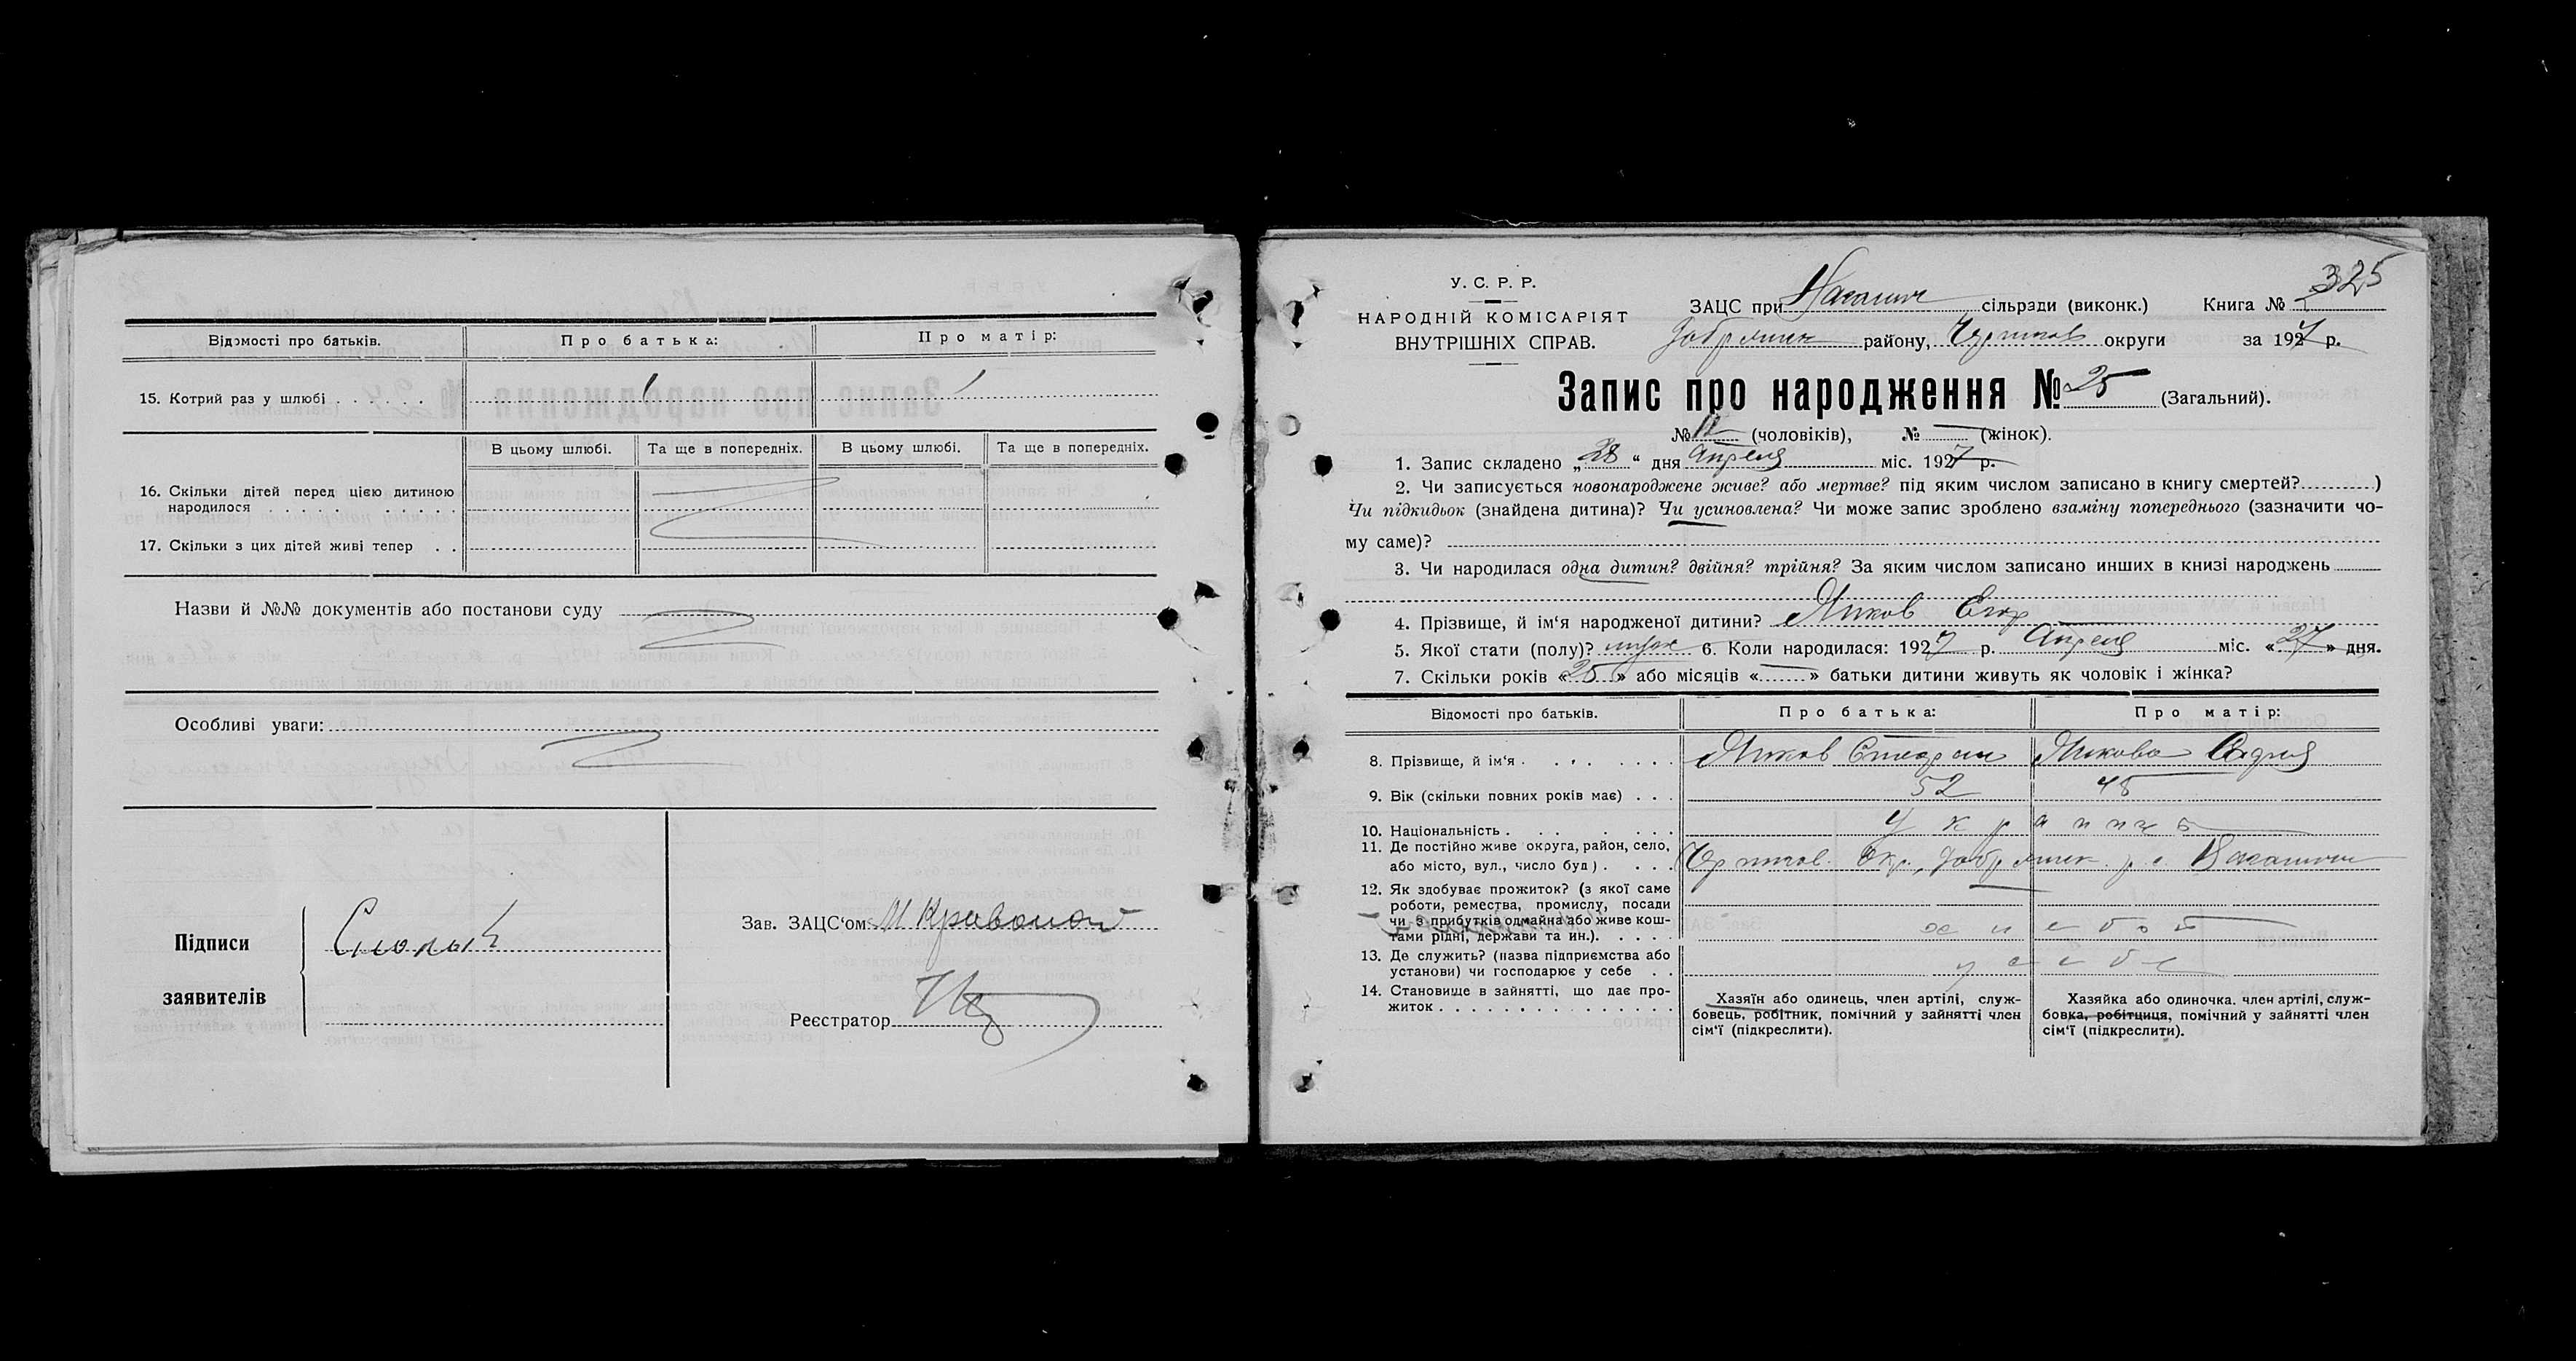 Відомості про батьків.
Про батька:
Про матір:
15. Котрий раз у шлюбі . . . . . .
1
1
В цьому шлюбі.
Та ще в попередніх.
В цьому шлюбі.
Та ще в попередніх.
16. Скільки дітей перед цією дитиною
народилося . . . . . . . . . .
17. Скільки з цих дітей живі тепер . .
Назви й №№ документів або постанови суду
Особливі уваги:
Підписи
заявителів
Зав. ЗАЦС‘ом
Реєстратор
325
У. С. Р. Р.
НАРОДНІЙ КОМІСАРІЯТ
ВНУТРІШНІХ СПРАВ.
ЗАЦС при сільради (виконк.) Книга № 2
району, округи за 1927 р.
Запис про народження № 25 (Загальний).
№ 12 (чоловіків), № — (жінок).
1. Запис складено „28“ дня Апреля міс. 1927 р.
2. Чи записується новонароджене живе? або мертве? під яким числом записано в книгу смертей? )
Чи підкидьок (знайдена дитина)? Чи усиновлена? Чи може запис зроблено взаміну попереднього (зазначити чо-
му саме)?
3. Чи народилася одна дитин? двійня? трійня? За яким числом записано инших в книзі народжень
4. Прізвище, й ім‘я народженої дитини? Яиков Егор
5. Якої стати (полу)? муж 6. Коли народилася: 1927 р. Апреля міс. «27» дня.
7. Скільки років «25» або місяців «—» батьки дитини живуть як чоловік і жінка?
Відомості про батьків.
Про батька:
Про матір:
8. Прізвище, й ім‘я . . . . . . . .
9. Вік (скільки повних років має) . . . 52 45
10. Національність . . . . . . . . Украинць
11. Де постійно живе округа, район, село,
або місто, вул., число буд) . . . .
12. Як здобуває прожиток? (з якої саме
роботи, ремества, промислу, посади
чи з прибутків одмайна або живе кош-
тами рідні, держави та ин.) . . . . . хлебоп
13. Де служить? (назва підприємства або
установи) чи господарює у себе . . у себе
14. Становище в зайнятті, що дає про-
житок . . . . . . . . . . . . . . .
Хазяїн або одинець, член артілі, служ-
бовець, робітник, помічний у зайнятті член
сім‘ї (підкреслити).
Хазяйка або одиночка. член артілі, служ-
бовка, робітниця, помічний у зайнятті член
сім‘ї (підкреслити).